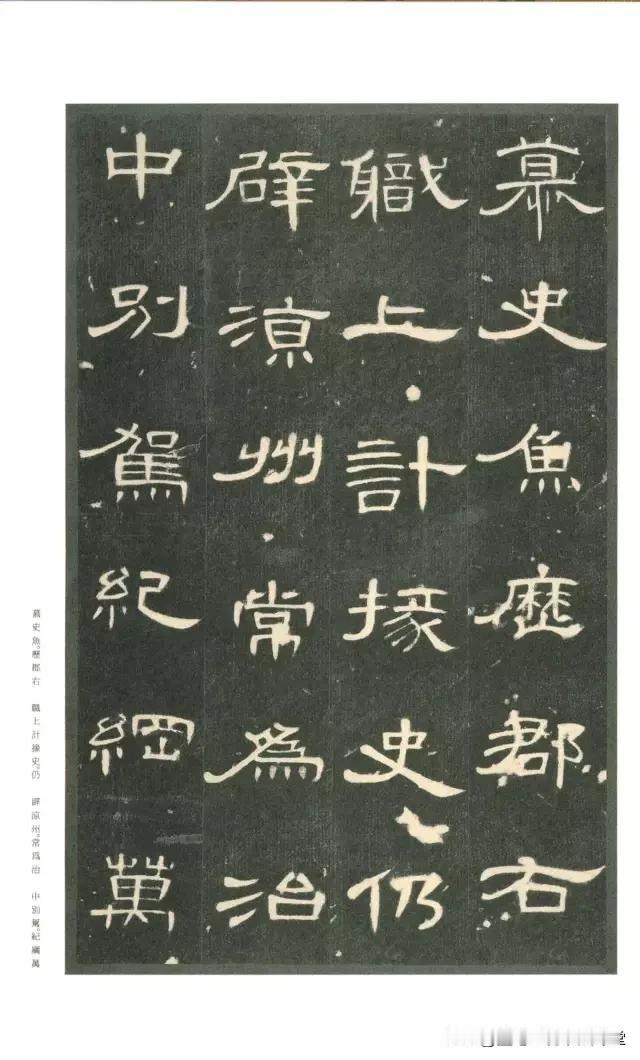 慕史魚歷郡右
職上計掾史仍
辟涼州常為治
中別駕紀綱萬
慕史魚。歷郡右 職上計掾史。仍 辟涼州。常爲治 中別駕。紀綱萬
堂